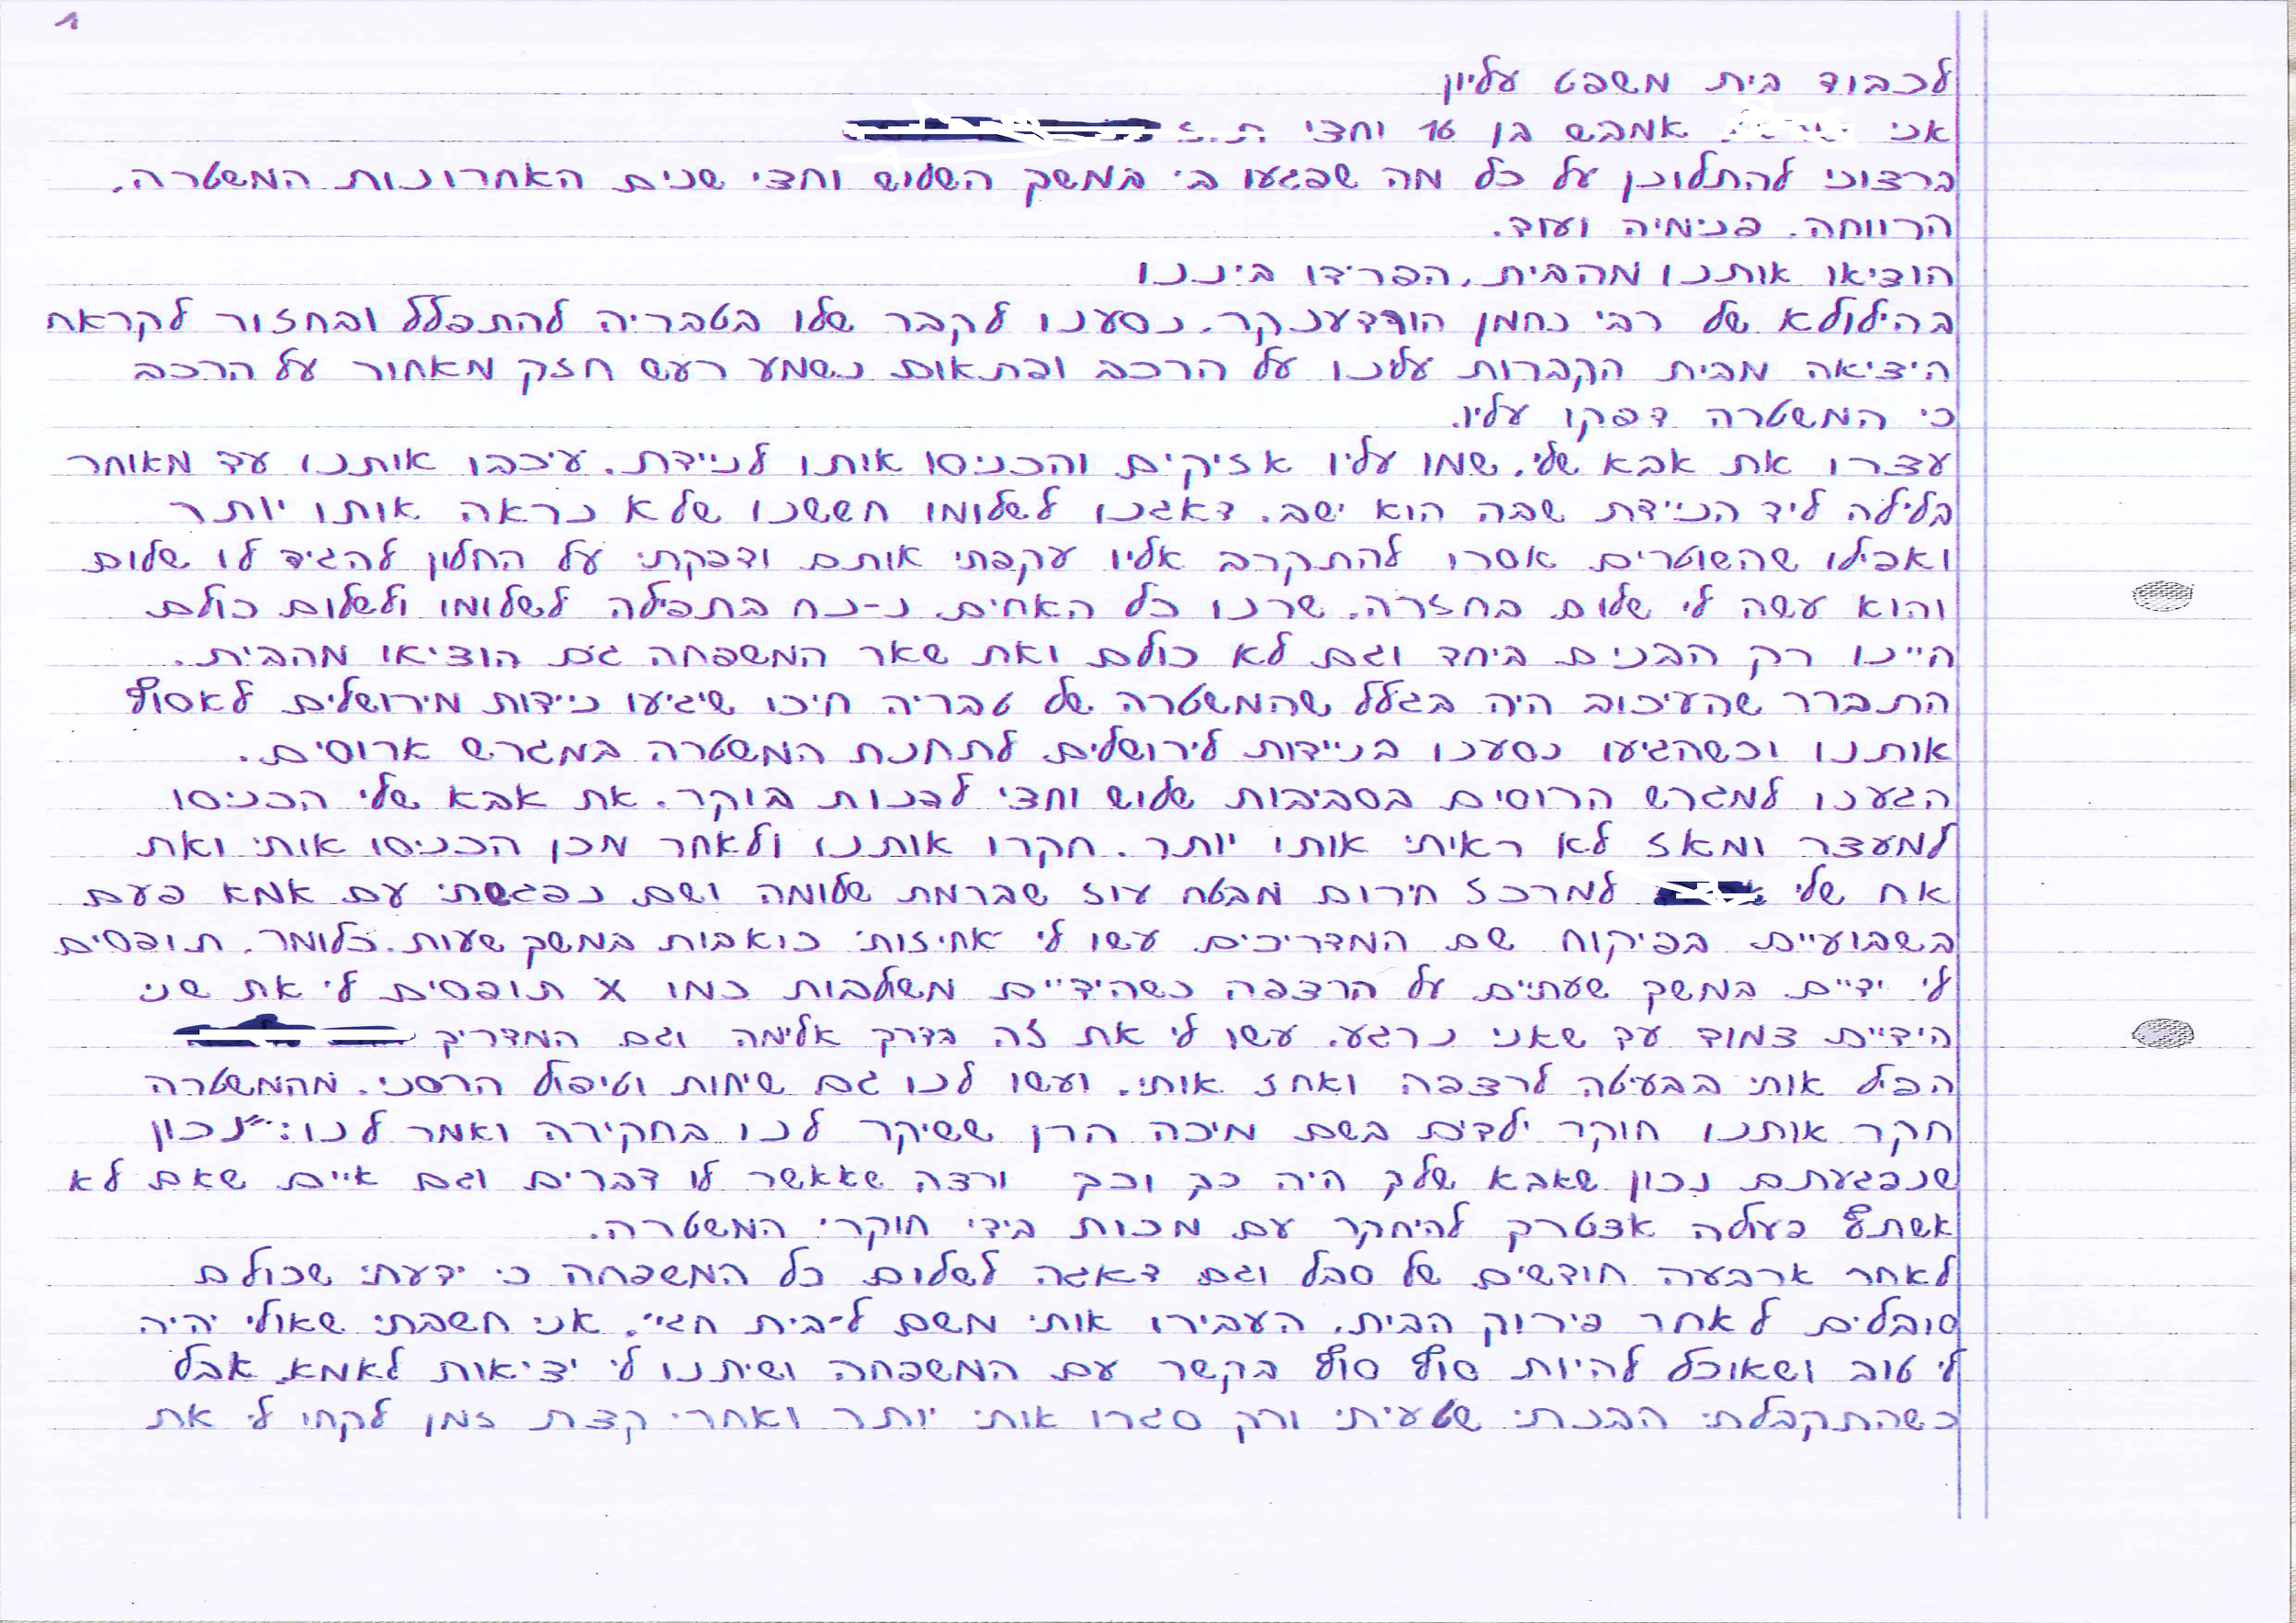 1
לכבוד בית משפט עליון
אני אמבש בן 16 וחצי ת.ז
ברצוני להתלונן על כל מה שפגעו בי במשך השלוש וחצי שנים האחרונות המשטרה,
הרווחה, פנימיה ועוד.
הוציאו אותנו מהבית, הפרידו ביננו
בהילולא של רבי נחמן הורדענקר, נסענו לקבר שלו בטבריה להתפלל ובחזור לקראת
היציאה מבית הקברות עלינו על הרכב ופתאום נשמע רעש חזק מאחור על הרכב
כי המשטרה דפקו עליו.
עצרו את אבא שלי, שמו עליו אזיקים והכניסו אותו לניידת, עיכבו אותנו עד מאוחר
בלילה ליד הניידת שבה הוא ישב, דאגנו לשלומו חששנו שלא נראה אותו יותר
ואפילו שהשוטרים אסרו להתקרב אליו עקפתי אותם ודפקתי על החלון להגיד לו שלום
והוא עשה לי שלום בחזרה, שרנו כל האחים נ-נח בתפילה לשלומו ולשלום כולם
היינו רק הבנים ביחד וגם לא כולם ואת שאר המשפחה גם הוציאו מהבית.
התברר שהעיכוב היה בגלל שהמשטרה של טבריה חיכו שיגיעו ניידות מירושלים לאסוף
אותנו וכשהגיעו נסענו בניידות לירושלים לתחנת המשטרה במגרש ארוסים.
הגענו למגרש הרוסים בסביבות שלוש וחצי לפנות בוקר. את אבא שלי הכניסו
למעצר ומאז לא ראיתי אותו יותר. חקרו אותנו ולאחר מכן הכניסו אותי ואת
אח שלי למרכז חירום מבטח עוז שברמת שלומה ושם נפגשתי עם אמא פעם
בשבועיים בפיקוח שם המדריכים עשו לי אחיזות כואבות במשך שעות. כלומר, תופסים
לי ידיים במשך שעתיים על הרצפה כשהידיים משולבות כמו X תופסים לי את שני
הידיים צמוד עד שאני נרגע, עשו לי את זה בדרך אלימה וגם המדריך
הפיל אותי בבעיטה לרצפה ואחז אותי, ועשו לנו גם שיחות וטיפול הרסני. מהמשטרה
חקר אותנו חוקר ילדים בשם מיכה הרן ששיקר לנו בחקירה ואמר לנו: "נכון
שנפגעתם נכון שאבא שלך היה כך וכך ורצה שאאשר לו דברים וגם איים שאם לא
אשתף פעולה אצטרך להיחקר עם מכות בידי חוקרי המשטרה.
לאחר ארבעה חודשים של סבל וגם דאגה לשלום כל המשפחה כי ידעתי שכולם
סובלים לאחר פירוק הבית, העבירו אותי משם ל"בית חגי", אני חשבתי שאולי יהיה
לי טוב ושאוכל להיות סוף סוף בקשר עם המשפחה ושיתנו לי יציאות לאמא, אבל
כשהתקבלתי הבנתי שטעיתי ורק סגרו אותי יותר ואחרי קצת זמן לקחו לי את